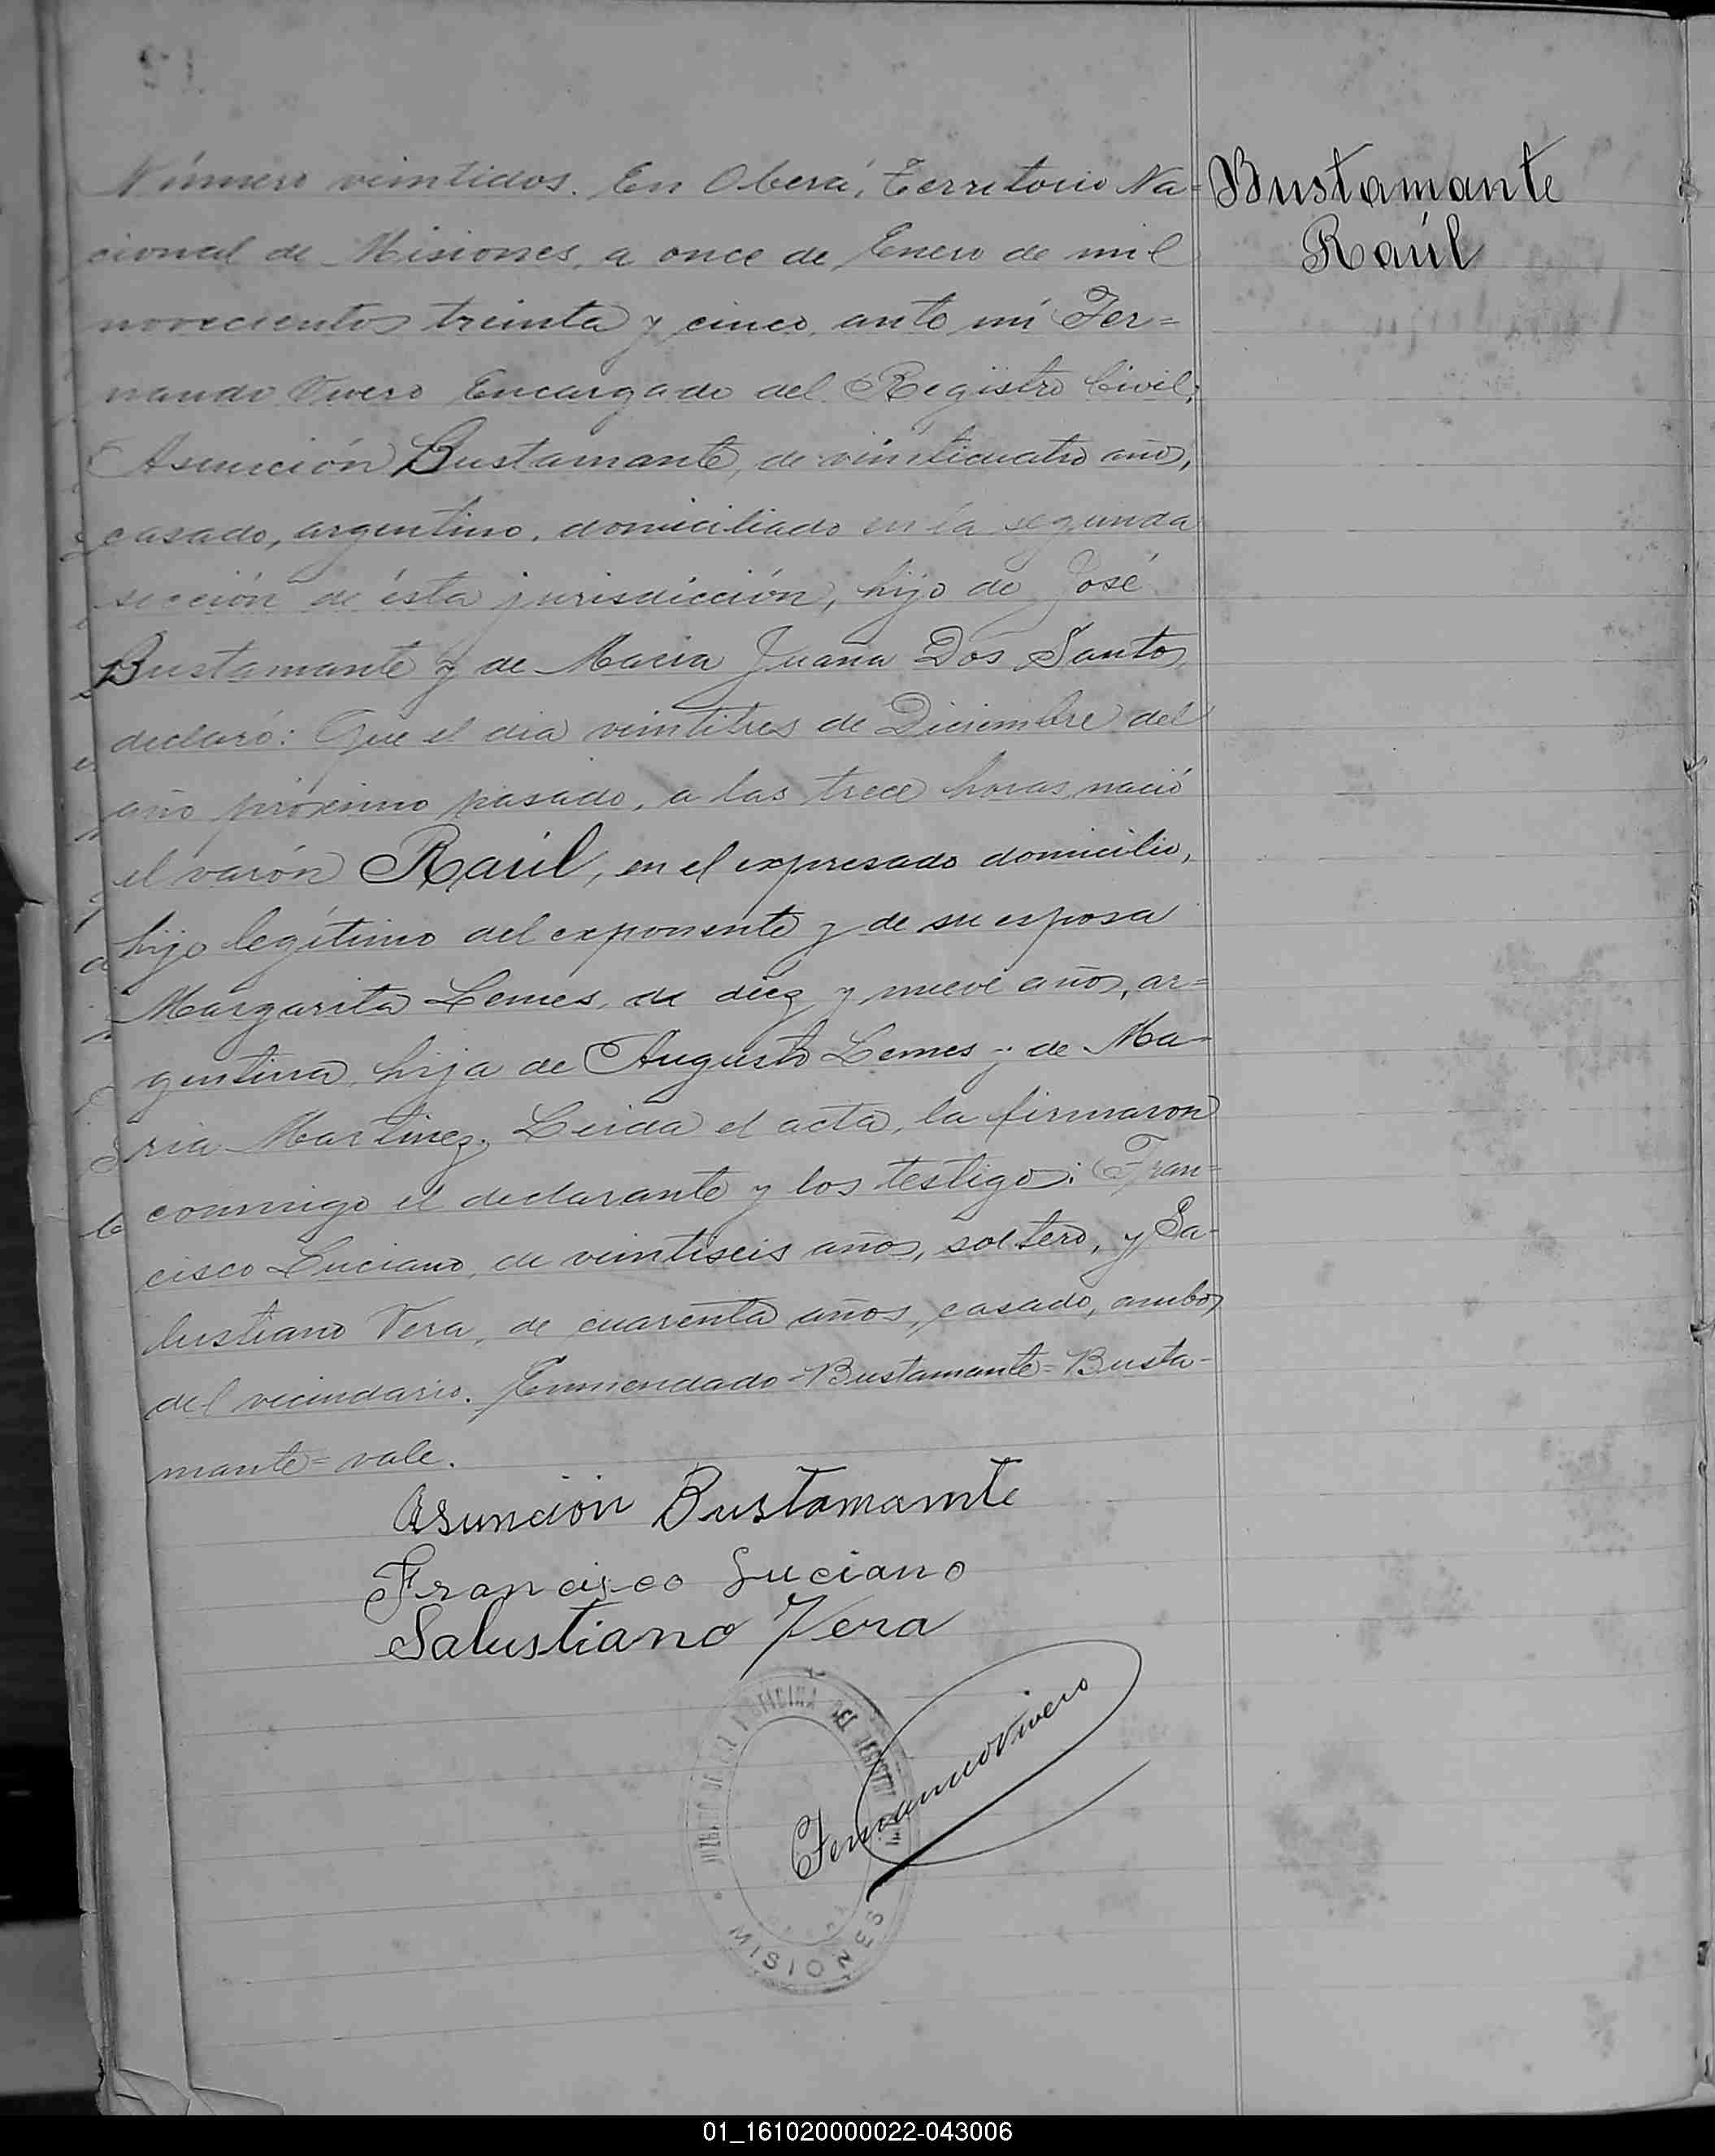 Bustamante
Raúl
Número veintidos. En Oberá, Territorio Na=
cional de Misiones, a once de Enero de mil
novecientos treinta y cinco, ante mí Fer=
nando Vivero Encargado del Registro Civil;
Asunción Bustamante, de veinticuatro años,
casado, argentino, domiciliado en la segunda
sección de ésta jurisdicción, hijo de José
Bustamante y de Maria Juana Dos Santos,
declaró: Que el dia veintitres de Diciembre del
año próximo pasado, a las trece horas, nació
el varón Raúl, en el expresado domicilio,
hijo legítimo del exponente y de su esposa
Margarita Lemes, de diez y nueve años, ar=
gentina, hija de Augusto Lemes y de Ma-
ria Martinez. Leida el acta, la firmaron
conmigo el declarante y los testigos: Fran=
cisco Luciano, de veintiseis años, soltero, y Sa-
lustiano Vera, de cuarenta años, casado, ambos
del vecindario. Enmendado=Bustamante=Busta-
mante=vale.
Asunción Bustamante
Francisco Luciano
Salustiano Vera
Fernando Vivero
JUZGADO DE PAZ Y OFICINA DEL REGISTRO
MISIONES
01_161020000022-043006